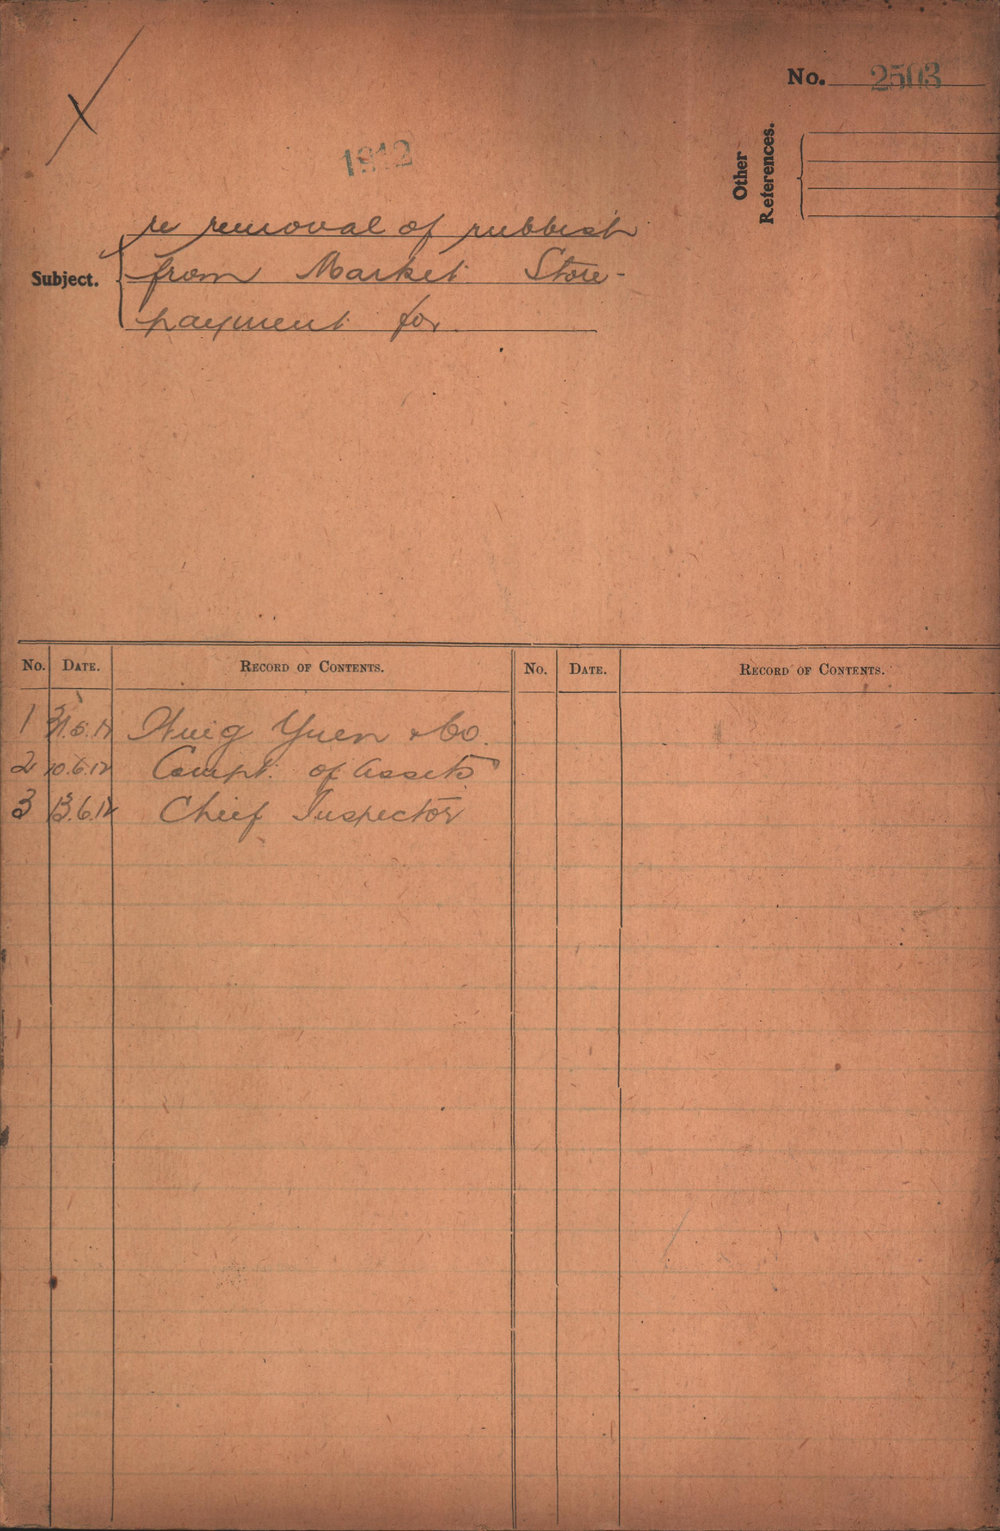 No. 2503
Other
References.
1912
re removal of rubbish
Subject. from Market Store-
payment for
No. DATE. RECORD OF CONTENTS. No. DATE. RECORD OF CONTENTS.
1 31.5.12 Yuen & Co.
2 10.6.12 Compt. of Assets
3 13.6.12 Chief Inspector